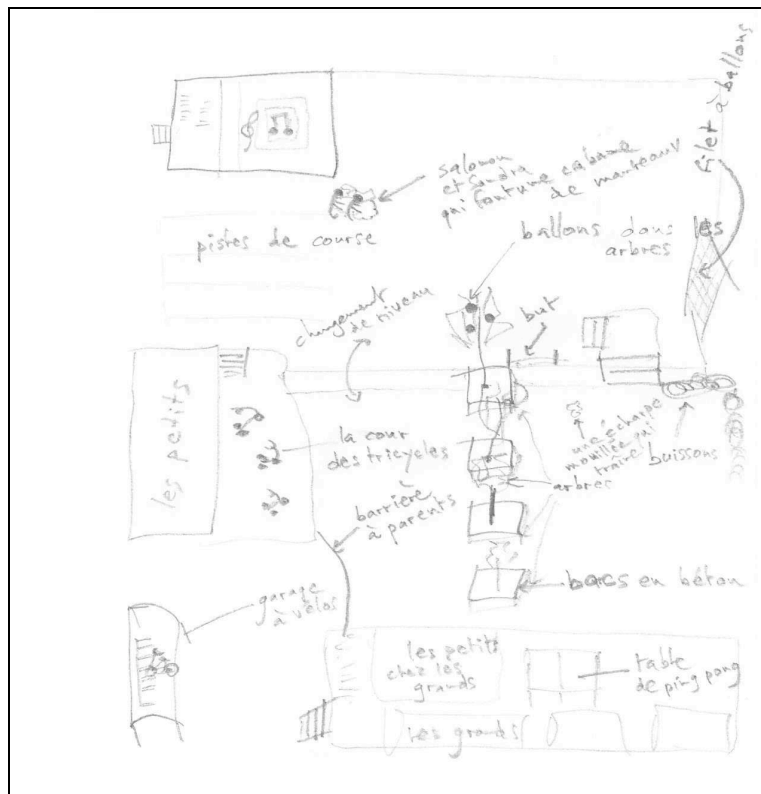 filet à ballons
salomon
et sandra
qui font une cabane
de manteaux
pistes de course
ballons dans les
arbres
changement
de niveau
but
les petits
la cour
des tricycles
une écharpe
mouillée qui
traîne
buissons
arbres
barrière
à parents
bacs en béton
garage
à vélos
les petits
chez les
grands
table
de ping pong
les grands